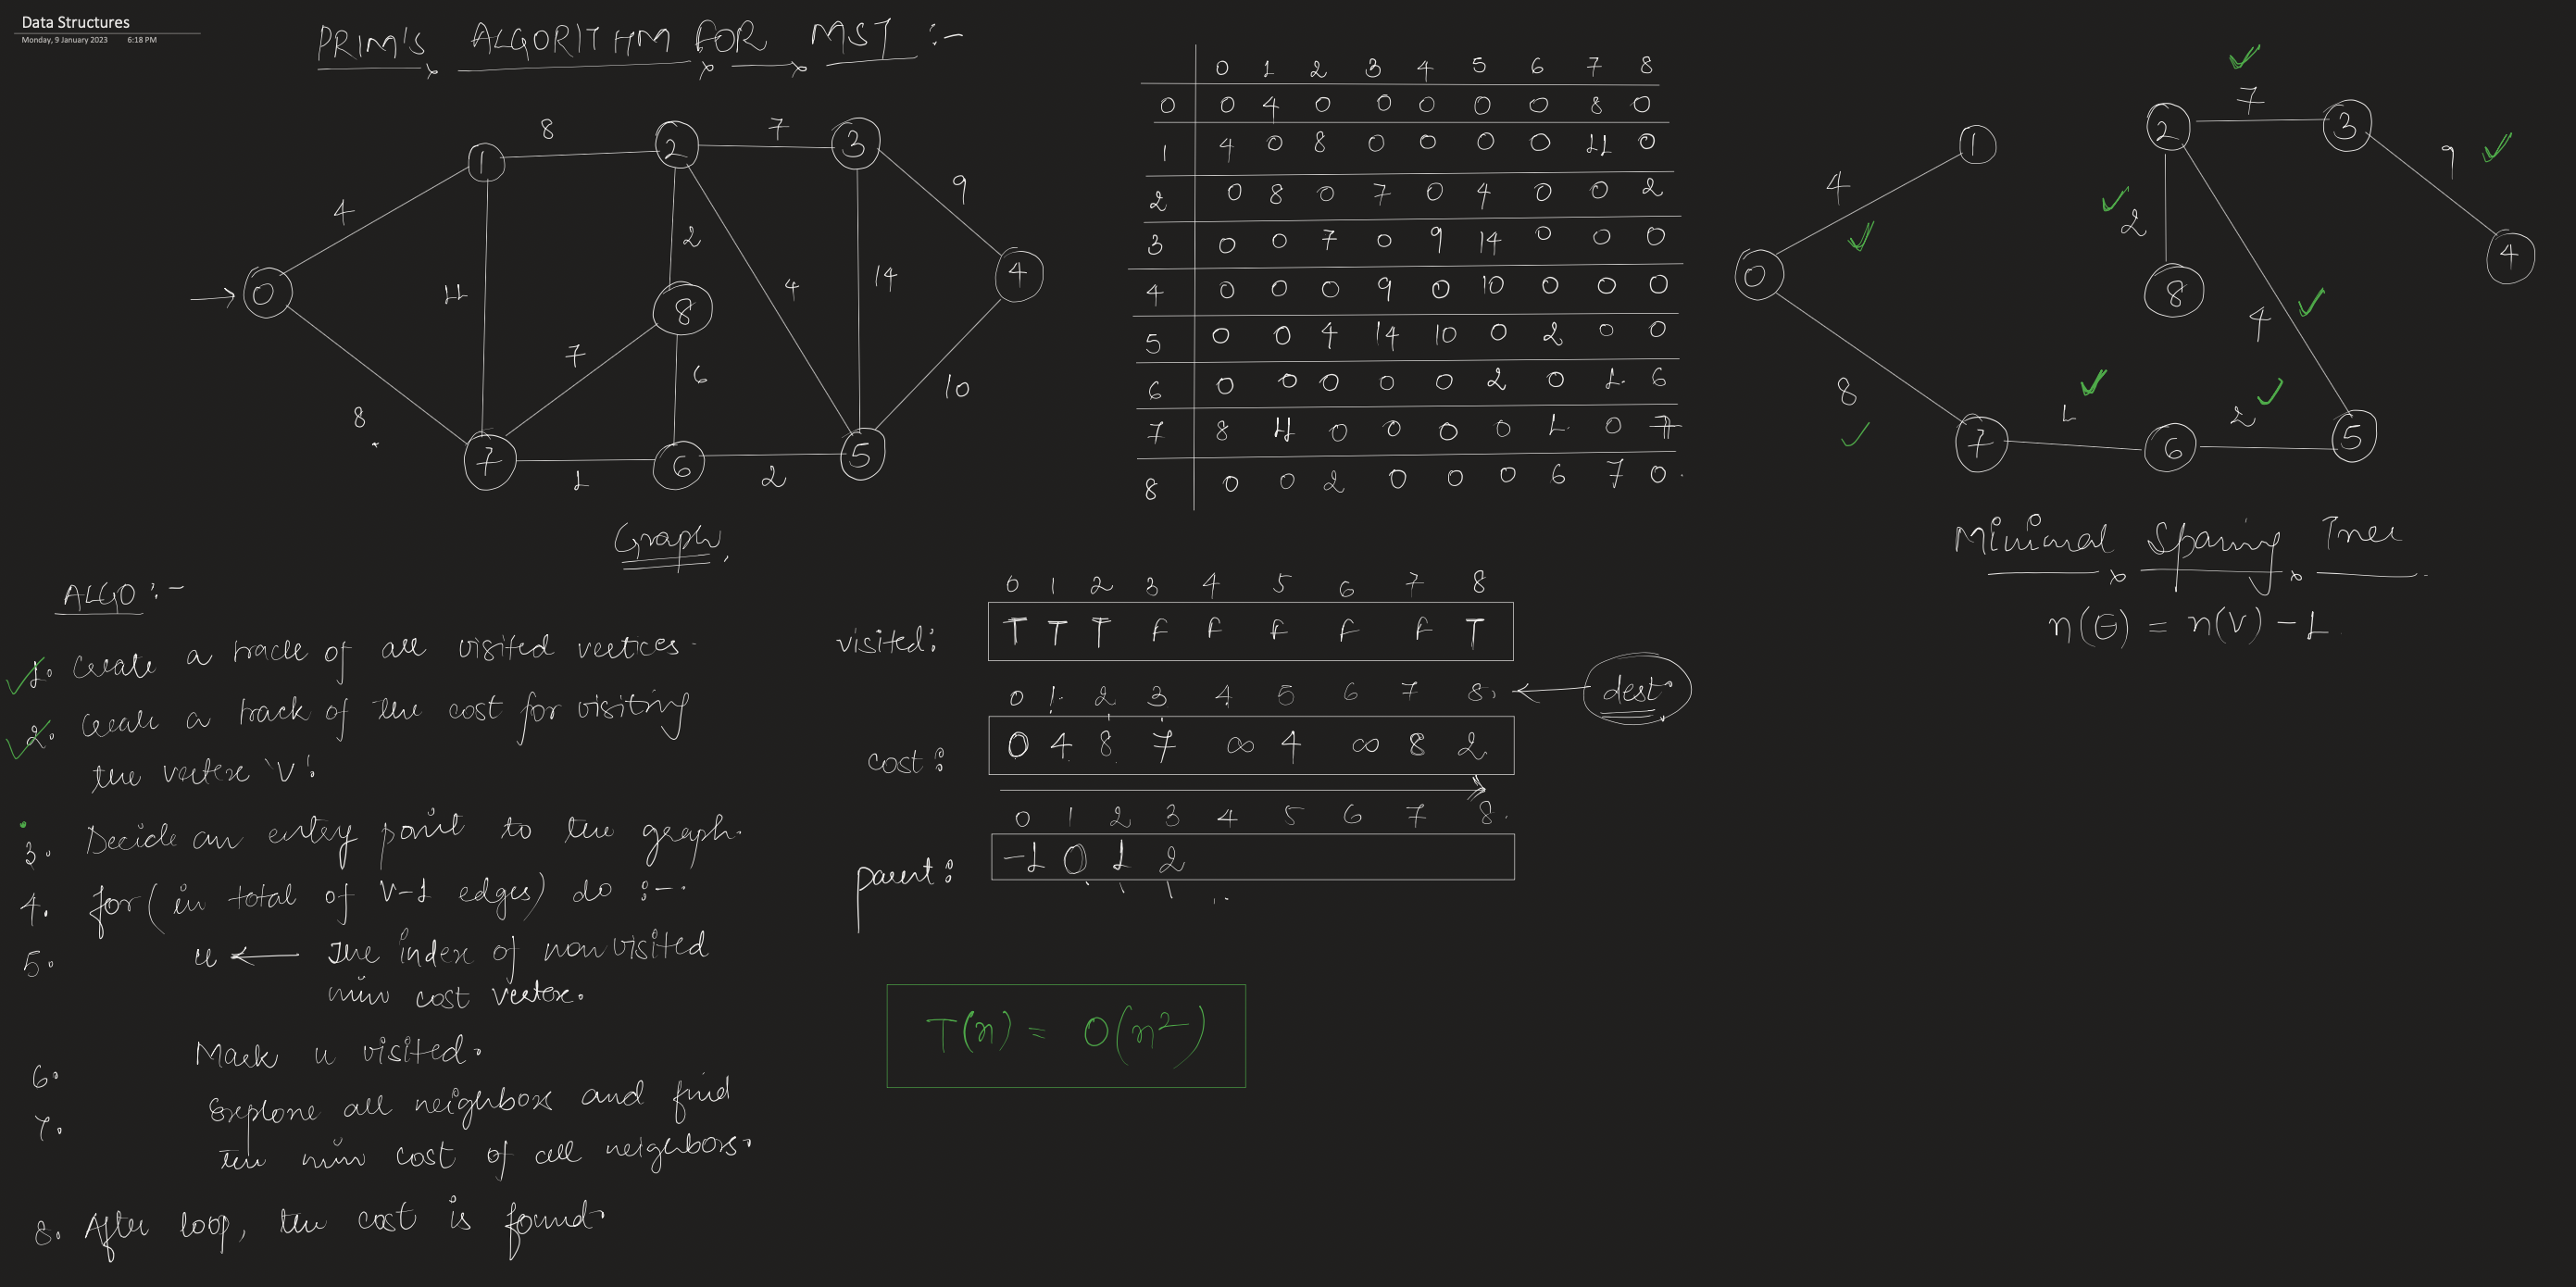 Data Structures
Monday, 9 January 2023 6:18 PM
PRIM'S ALGORITHM FOR MST :-
8
7
1
2
3
4
9
11
2
4
14
0
8
4
7
6
10
8
7
1
6
2
5
Graph,
0 1 2 3 4 5 6 7 8
0 0 4 0 0 0 0 0 8 0
1 4 0 8 0 0 0 0 11 0
2 0 8 0 7 0 4 0 0 2
3 0 0 7 0 9 14 0 0 0
4 0 0 0 9 0 10 0 0 0
5 0 0 4 14 10 0 2 0 0
6 0 0 0 0 0 2 0 1 6
7 8 11 0 0 0 0 1 0 7
8 0 0 2 0 0 0 6 7 0
7
1
2
3
4
9
2
0
8
4
4
8
1
2
7
6
5
Minimal Spaning Tree
n(E) = n(V) - 1
ALGO :-
1. Create a track of all visited vertices.
2. Create a track of the cost for visiting
the vertex 'V'.
3. Decide an entry point to the graph.
4. for (in total of V-1 edges) do :-
5. u ← The index of nonvisited
min cost vertex.
6. Mark u visited.
7. Explore all neighbors and find
the min cost of all neighbors.
8. After loop, the cost is found.
0 1 2 3 4 5 6 7 8
visited: T T T F F F F F T
0 1 2 3 4 5 6 7 8 ← dest.
cost: 0 4 8 7 ∞ 4 ∞ 8 2
0 1 2 3 4 5 6 7 8
parent: -1 0 1 2
T(n) = O(n²)